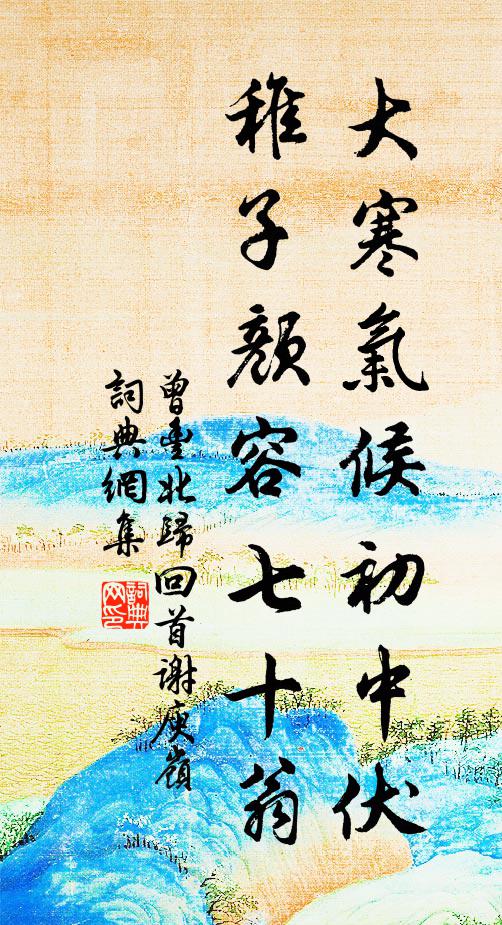 大寒氣候初中伏
稚子顏容七十翁
曾豐北歸回首謝庾嶺
詞典網集
詞典
网印